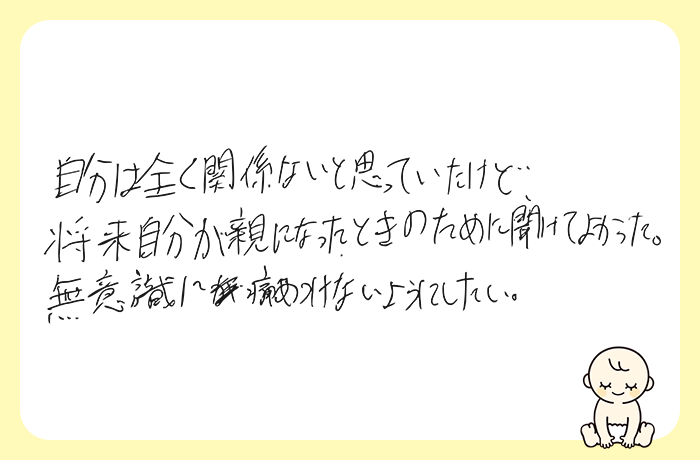 自分は全く関係ないと思っていたけど、
将来自分が親になったときのために聞けてよかった。
無意識に痛めつけないようにしたい。